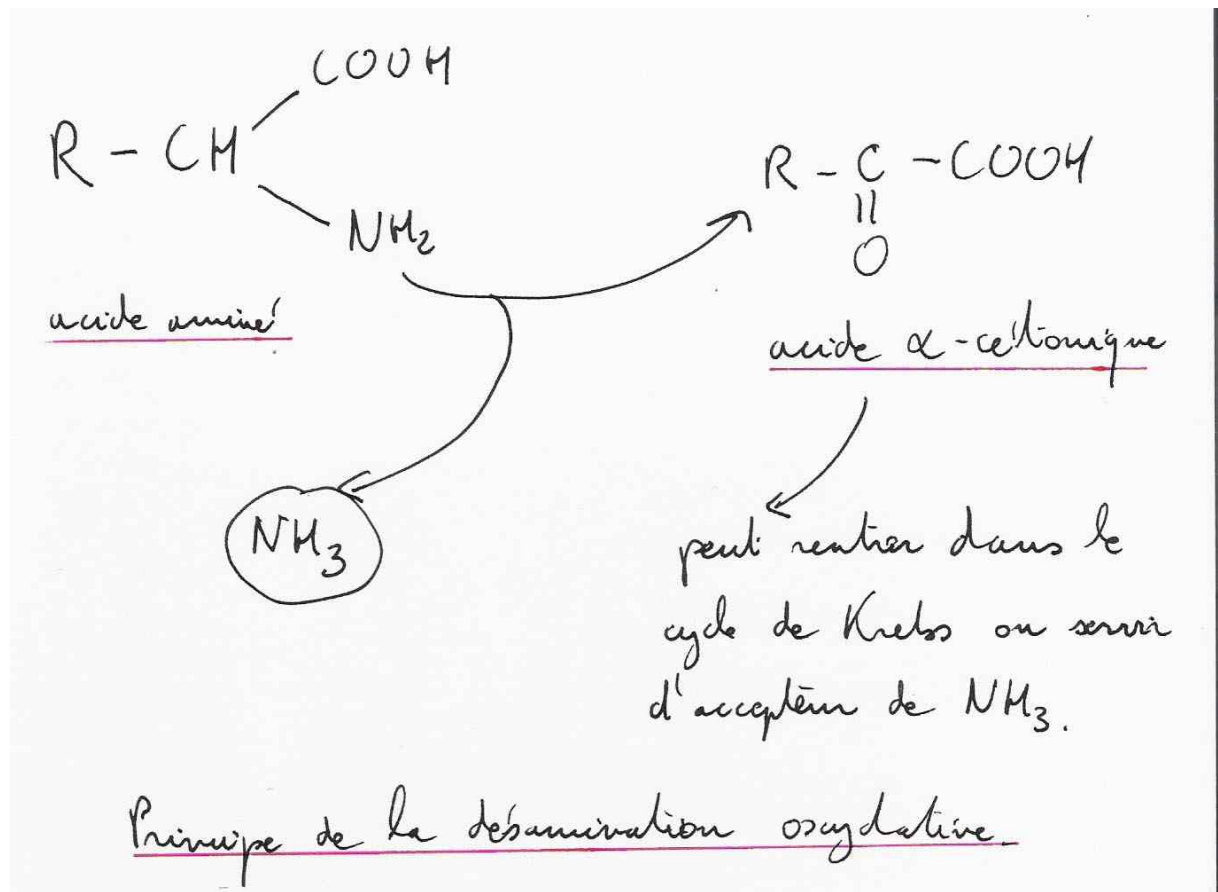 COOH
R - CH
NH₂
acide aminé
R - C - COOH
||
O
acide α-cétonique
NH₃
peut rentrer dans le
cycle de Krebs ou servir
d'accepteur de NH₃.
Principe de la désamination oxydative.